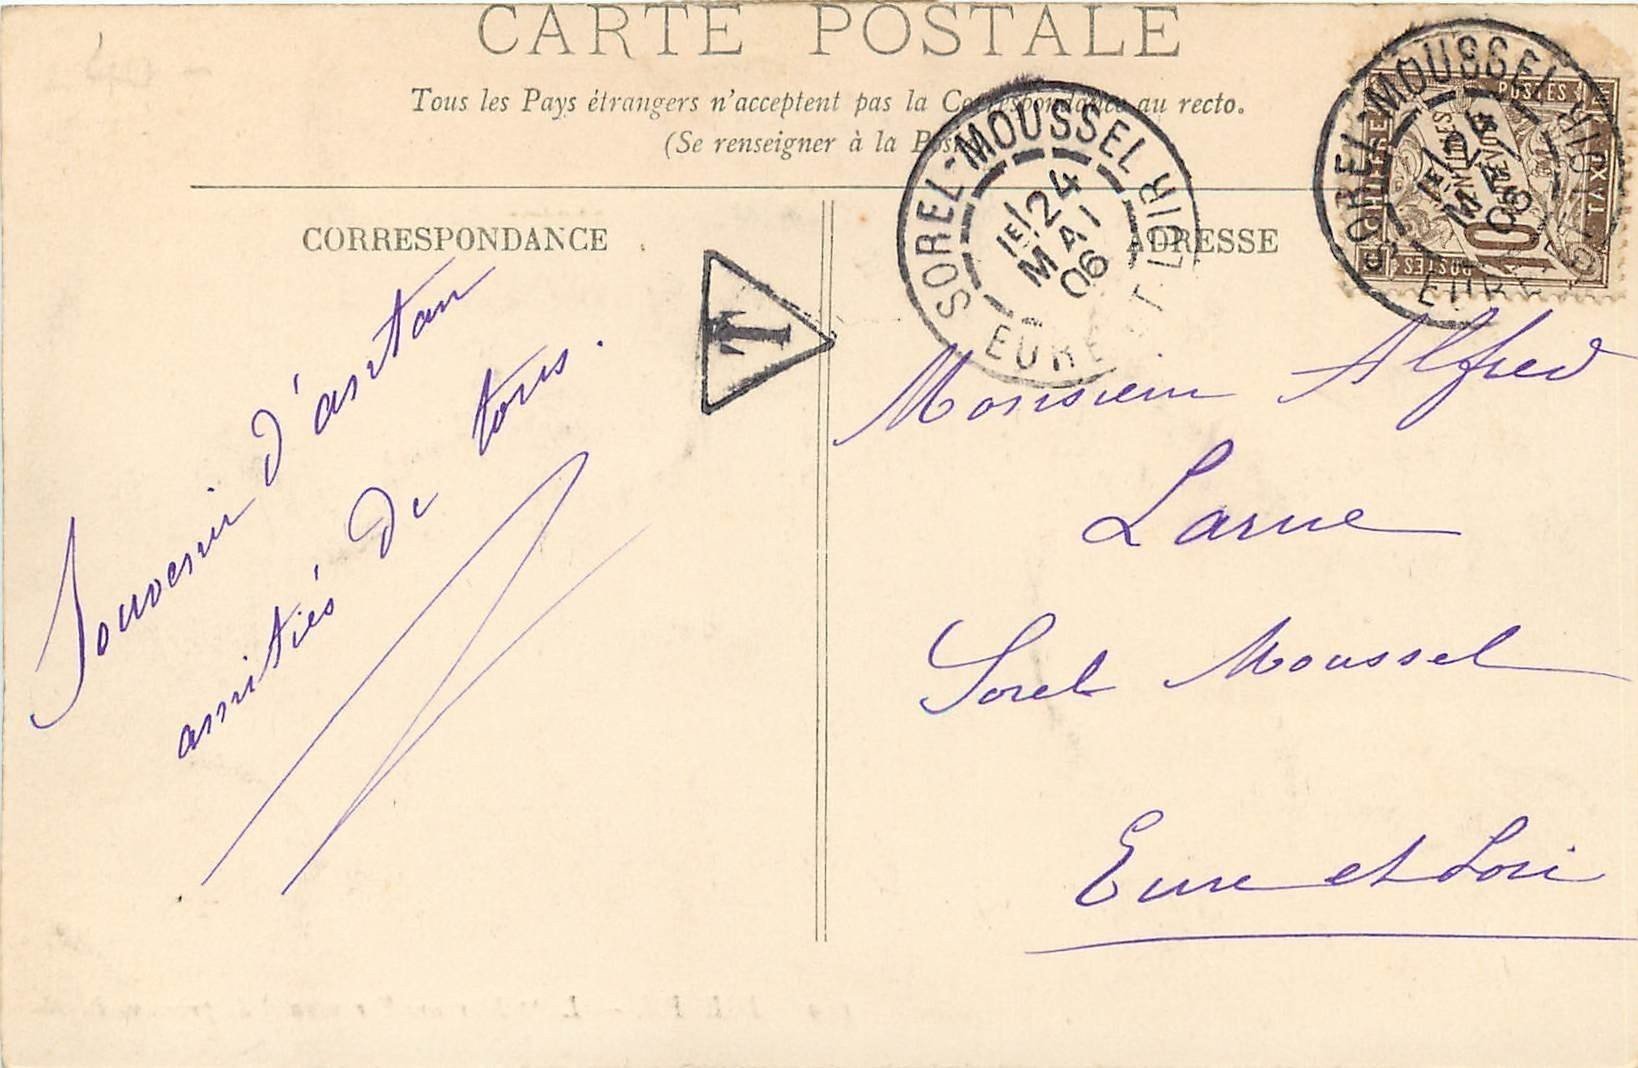 CARTE POSTALE
Tous les Pays étrangers n'acceptent pas la Correspondance au recto.
(Se renseigner à la Poste)
CORRESPONDANCE
ADRESSE
SOREL-MOUSSEL
1E/24
MAI
06
EURE ET LOIR
SOREL-MOUSSEL
1E/24
MAI
06
EURE ET LOIR
POSTES
CHIFFRE
TAXE
10
POSTES
T
Souvenir d'antan
amitiés de tous.
Monsieur Alfred
Larue
Sorel Moussel
Eure et Loir